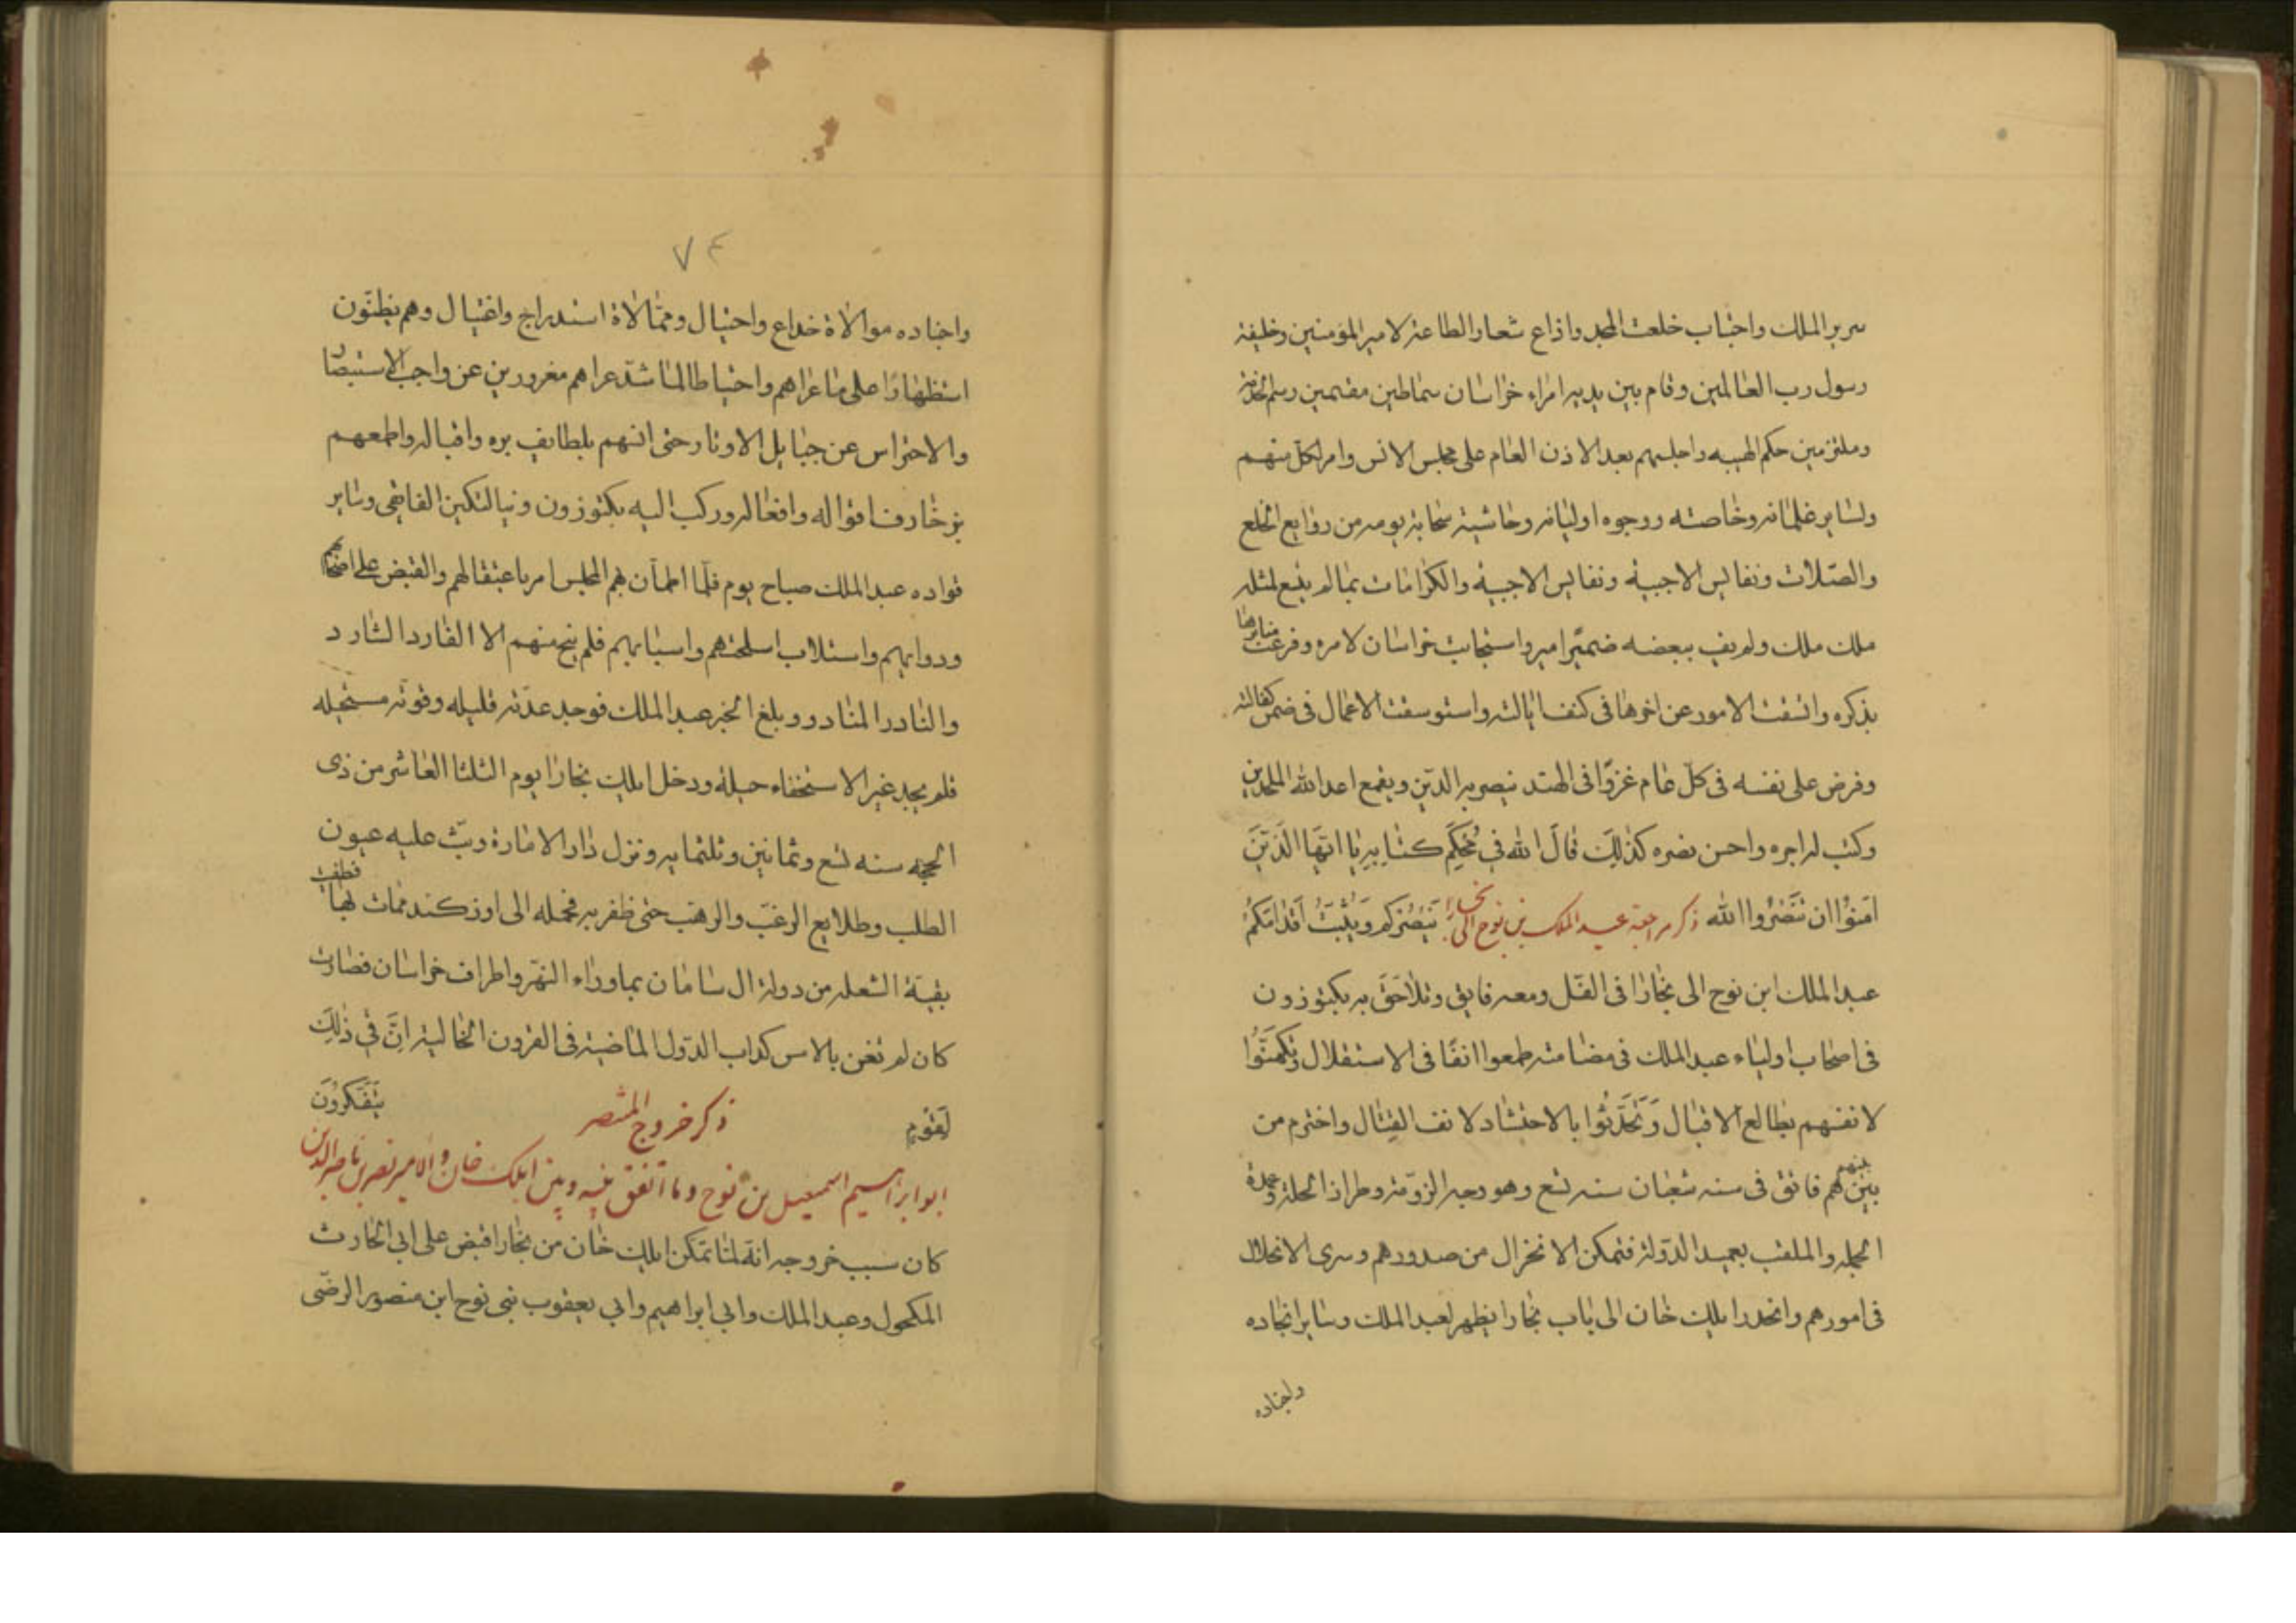 سرير الملك واجتاب خلعت المجد واذاع شعار الطاعة لامير المؤمنين وخليفة
رسول رب العالمين وقام بين يديه امراء خراسان سماطين مقيمين رسم الخدمة
وملتزمين حكم الهيبه واجلسهم بعد الاذن العام على مجلس الانس وامر لكل منهم
ولساير غلمانه وخاصته ووجوه اوليائه وحاشيته سحابة يومه من روايع الخلع
والصلات ونفايس الاجبية ونفايس الاجبية والكرامات بما لم يتسع لمثله
ملك ملك ولم يف ببعضه ضمير امير واستجابت خراسان لامره وفرعت منابرها
بذكره واتسقت الامور عن اخرها فى كنف ايالته واستوسقت الاعمال فى ضمن كفالته
وفرض على نفسه فى كل عام غزوا فى الهند ينصر به الدين ويقمع اعداالله الملحدين
وكتب له اجره واحسن نصره كذلك قال الله في محكم كتابه يا ايها الذين
امنوا ان تنصروا الله ذكر مراجعة عبد الملك بن نوح الى بخارا ينصركم ويثبت اقدامكم
عبد الملك ابن نوح الى بخارا فى الفل ومعه فايق وتلاحق به بكتوزون
فى اصحاب اولياء عبد الملك فى مضامته طمعوا انفا فى الاستقلال وتكهنوا
لانفسهم بطالع الاقبال وتحدثوا بالاحتشاد لانف القتال واخترم من
بينهم فائق فى سنه شعبان سنه تسع وهو وجه الزومة وطراز الحلة وعمدة
الجمله والملقب بعميد الدولة فتمكن الانخزال من صدورهم وسرى الانحلال
فى امورهم وانحدر ايلك خان الى باب بخارا يظهر لعبد الملك وساير انجاده
واجناده
٧٤
واجناده موالاة خداع واحتيال وممالاة استدراج واغتيال وهم يظنون
استظهارا على ما عراهم واحتياطا لما شد عراهم مغرورين عن واجب الاستبصار
والاحتراس عن حبايل الاوتار حتى انسهم بلطايف بره واقباله واطمعهم
بزخارف اقواله وافعاله وركب اليه بكتوزون وينالتكين الفايقى وساير
قواده عبد الملك صباح يوم فلما اطمأن بهم المجلس امر باعتقالهم والقبض على اصحابهم
ودوابهم واستلاب اسلحتهم واسبابهم فلم ينج منهم الا الفارد الشارد
والنادر المنادر وبلغ الخبر عبد الملك فوجد عدته قليله وقوته مستحيله
فلم يجد غير الاستخفاء حيلة ودخل ايلك بخارا يوم الثلثا العاشر من ذى
الحجه سنه تسع وثمانين وثلثمايه ونزل دار الامارة وبث عليه عيون
الطلب وطلايع الرغب والرهب حتى ظفر به فحمله الى اوزكند فمات بها فطفيت
بقية الشعله من دولة ال سامان بماوراء النهر واطراف خراسان فصارت
كان لم تغن بالامس كداب الدول الماضية فى القرون الخالية ان في ذلك
لقوم يتفكرون
ذكر خروج المنتصر
ابو ابراهيم اسمعيل بن نوح وما اتفق بينه وبين ايلك خان والامير نصر بن ناصر الدين
كان سبب خروجه انه لما تمكن ايلك خان من بخارا قبض على ابي الحارث
المكحول وعبد الملك وابي ابراهيم وابي يعقوب بنى نوح ابن منصور الرضى